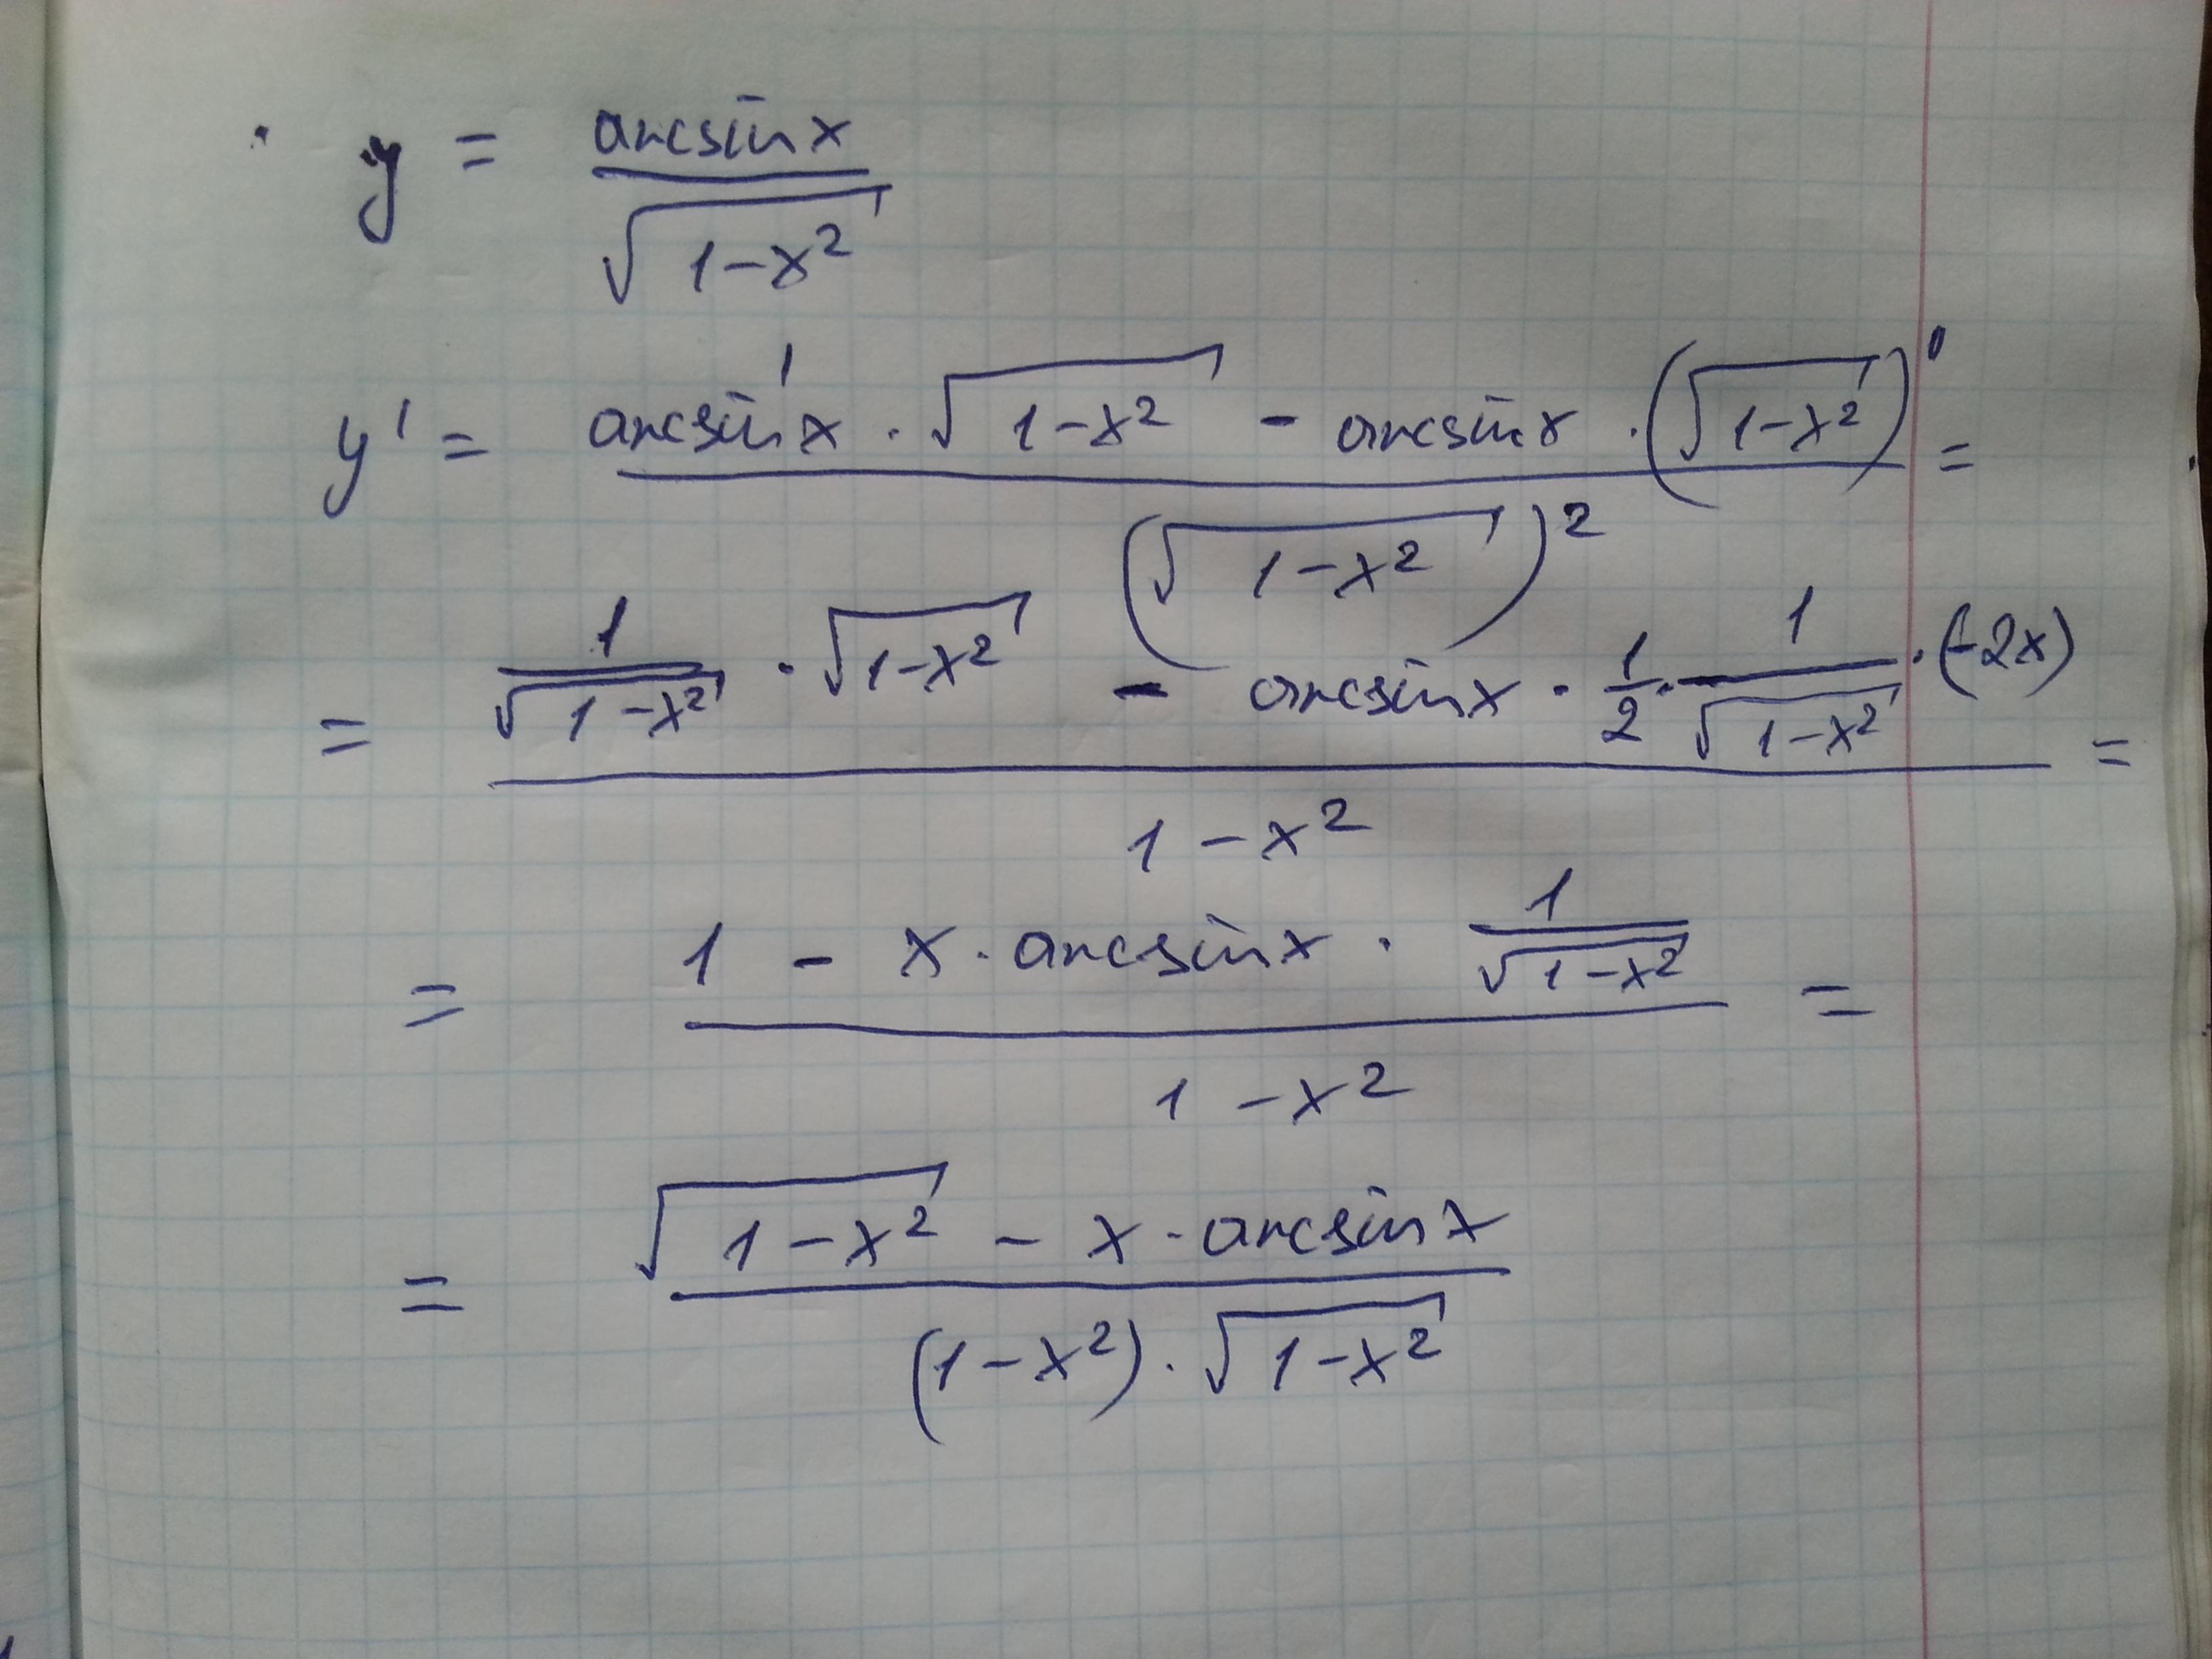 y = arcsin x / √(1-x²)
y' = (arcsin'x · √(1-x²) - arcsin x · (√(1-x²))') / (√(1-x²))² =
= (1/√(1-x²) · √(1-x²) - arcsin x · 1/2 · 1/√(1-x²) · (-2x)) / (1-x²) =
= (1 - x · arcsin x · 1/√(1-x²)) / (1-x²) =
= (√(1-x²) - x · arcsin x) / ((1-x²) · √(1-x²))